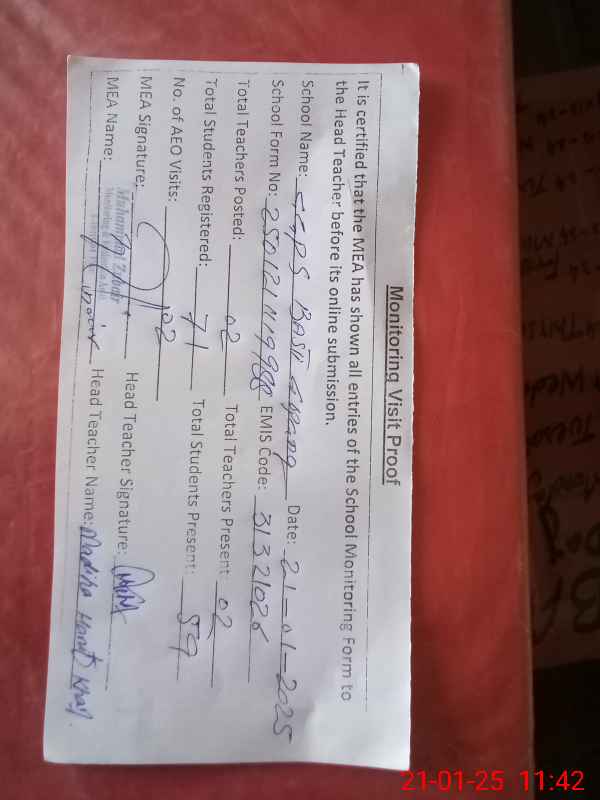 Monitoring Visit Proof
It is certified that the MEA has shown all entries of the School Monitoring Form to
the Head Teacher before its online submission.
School Name: Basti Date: 21-01-2025
School Form No: EMIS Code: 31321026
Total Teachers Posted: 02 Total Teachers Present 02
Total Students Registered: 71 Total Students Present: 59
No. of AEO Visits: 02
MEA Signature: Head Teacher Signature:
MEA Name: Head Teacher Name: Madiha Khan
21-01-25 11:42